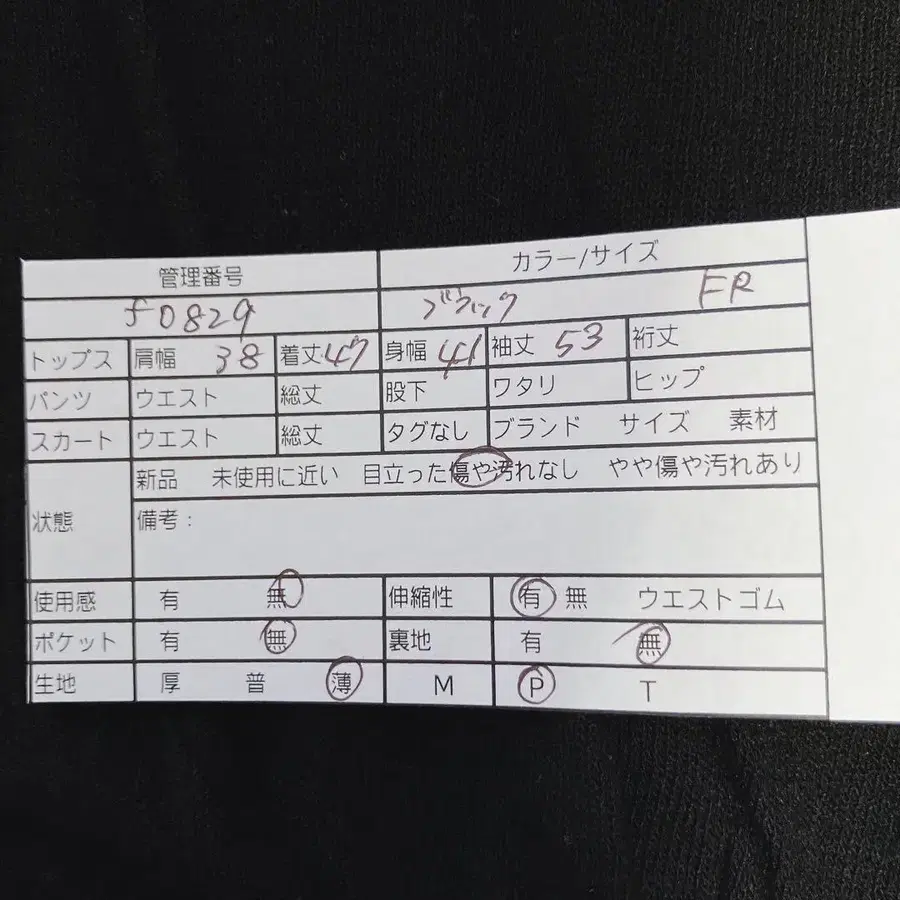 管理番号 カラー/サイズ
f0829 ブラック FR
トップス 肩幅 38 着丈 47 身幅 41 袖丈 53 裄丈
パンツ ウエスト 総丈 股下 ワタリ ヒップ
スカート ウエスト 総丈 タグなし ブランド サイズ 素材
新品 未使用に近い 目立った傷や汚れなし やや傷や汚れあり
状態 備考:
使用感 有 無 伸縮性 有 無 ウエストゴム
ポケット 有 無 裏地 有 無
生地 厚 普 薄 M P T